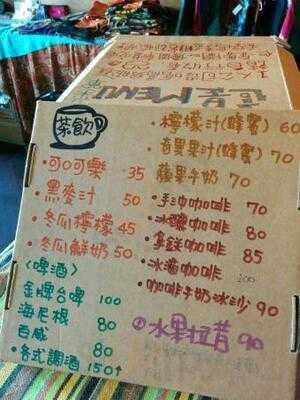 這是MENU
茶飲
•可口可樂 35
•黑麥汁 50
•冬瓜檸檬 45
•冬瓜鮮奶 50
〈啤酒〉
金牌台啤 100
海尼根 80
百威 80
•各式調酒 150↑
•檸檬汁(蜂蜜) 60
•百果汁(蜂蜜) 70
蘋果牛奶 70
•手沖咖啡 70
•冰釀咖啡 80
•拿鐵咖啡 85
•冰滴咖啡
•咖啡牛奶冰沙 90
水果拉昔 90